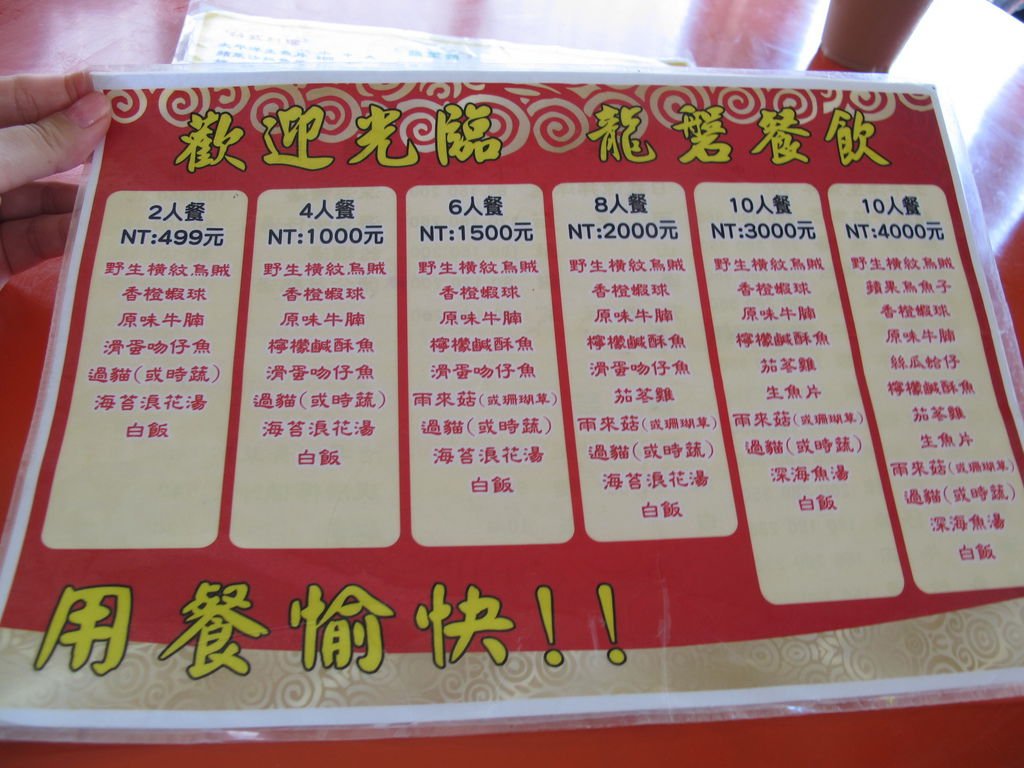 歡迎光臨 龍磐餐飲
2人餐
NT:499元
野生橫紋烏賊
香橙蝦球
原味牛腩
滑蛋吻仔魚
過貓(或時蔬)
海苔浪花湯
白飯
4人餐
NT:1000元
野生橫紋烏賊
香橙蝦球
原味牛腩
檸檬鹹酥魚
滑蛋吻仔魚
過貓(或時蔬)
海苔浪花湯
白飯
6人餐
NT:1500元
野生橫紋烏賊
香橙蝦球
原味牛腩
檸檬鹹酥魚
滑蛋吻仔魚
雨來菇(或珊瑚草)
過貓(或時蔬)
海苔浪花湯
白飯
8人餐
NT:2000元
野生橫紋烏賊
香橙蝦球
原味牛腩
檸檬鹹酥魚
滑蛋吻仔魚
茄苳雞
雨來菇(或珊瑚草)
過貓(或時蔬)
海苔浪花湯
白飯
10人餐
NT:3000元
野生橫紋烏賊
香橙蝦球
原味牛腩
檸檬鹹酥魚
茄苳雞
生魚片
雨來菇(或珊瑚草)
過貓(或時蔬)
深海魚湯
白飯
10人餐
NT:4000元
野生橫紋烏賊
蘋果烏魚子
香橙蝦球
原味牛腩
絲瓜蛤仔
檸檬鹹酥魚
茄苳雞
生魚片
雨來菇(或珊瑚草)
過貓(或時蔬)
深海魚湯
白飯
用餐愉快!!